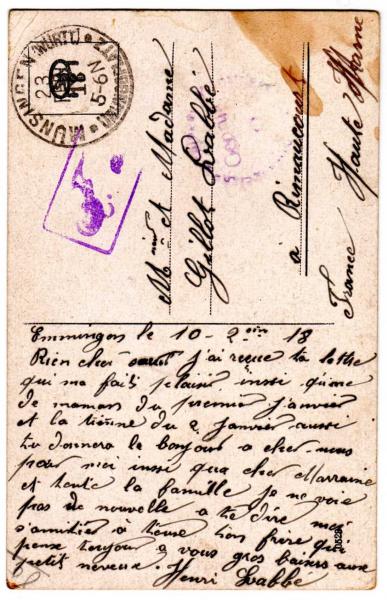 MÜNSINGEN (WÜRTT.)
23
5-6N
Mneur et Madame
Gillot Labbé
a Rimaucourt
Haute Marne
France
Emmingen le 10 - 2 18
Bien cher j'ai reçue ta lettre
qui ma fait plaisir insi qu'une
de maman du premier janvier
et la tienne du 2 janvier aussi
tu donnera le bonjour a cher nous
pour moi insi qua cher Marraine
et toute la famille je ne voie
pas de nouvelle a te dire mes
s'amitiés a tous ton frère qui
pense toujour a vous gros baisers aux
petit neveux. Henri Labbé